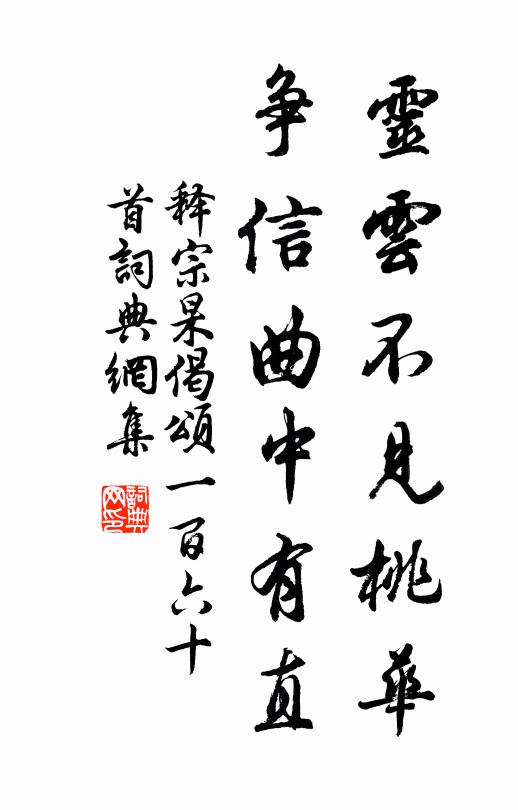 靈雲不見桃華
争信曲中有直
释宗杲偈頌一百六十
首詞典網集
詞典网印